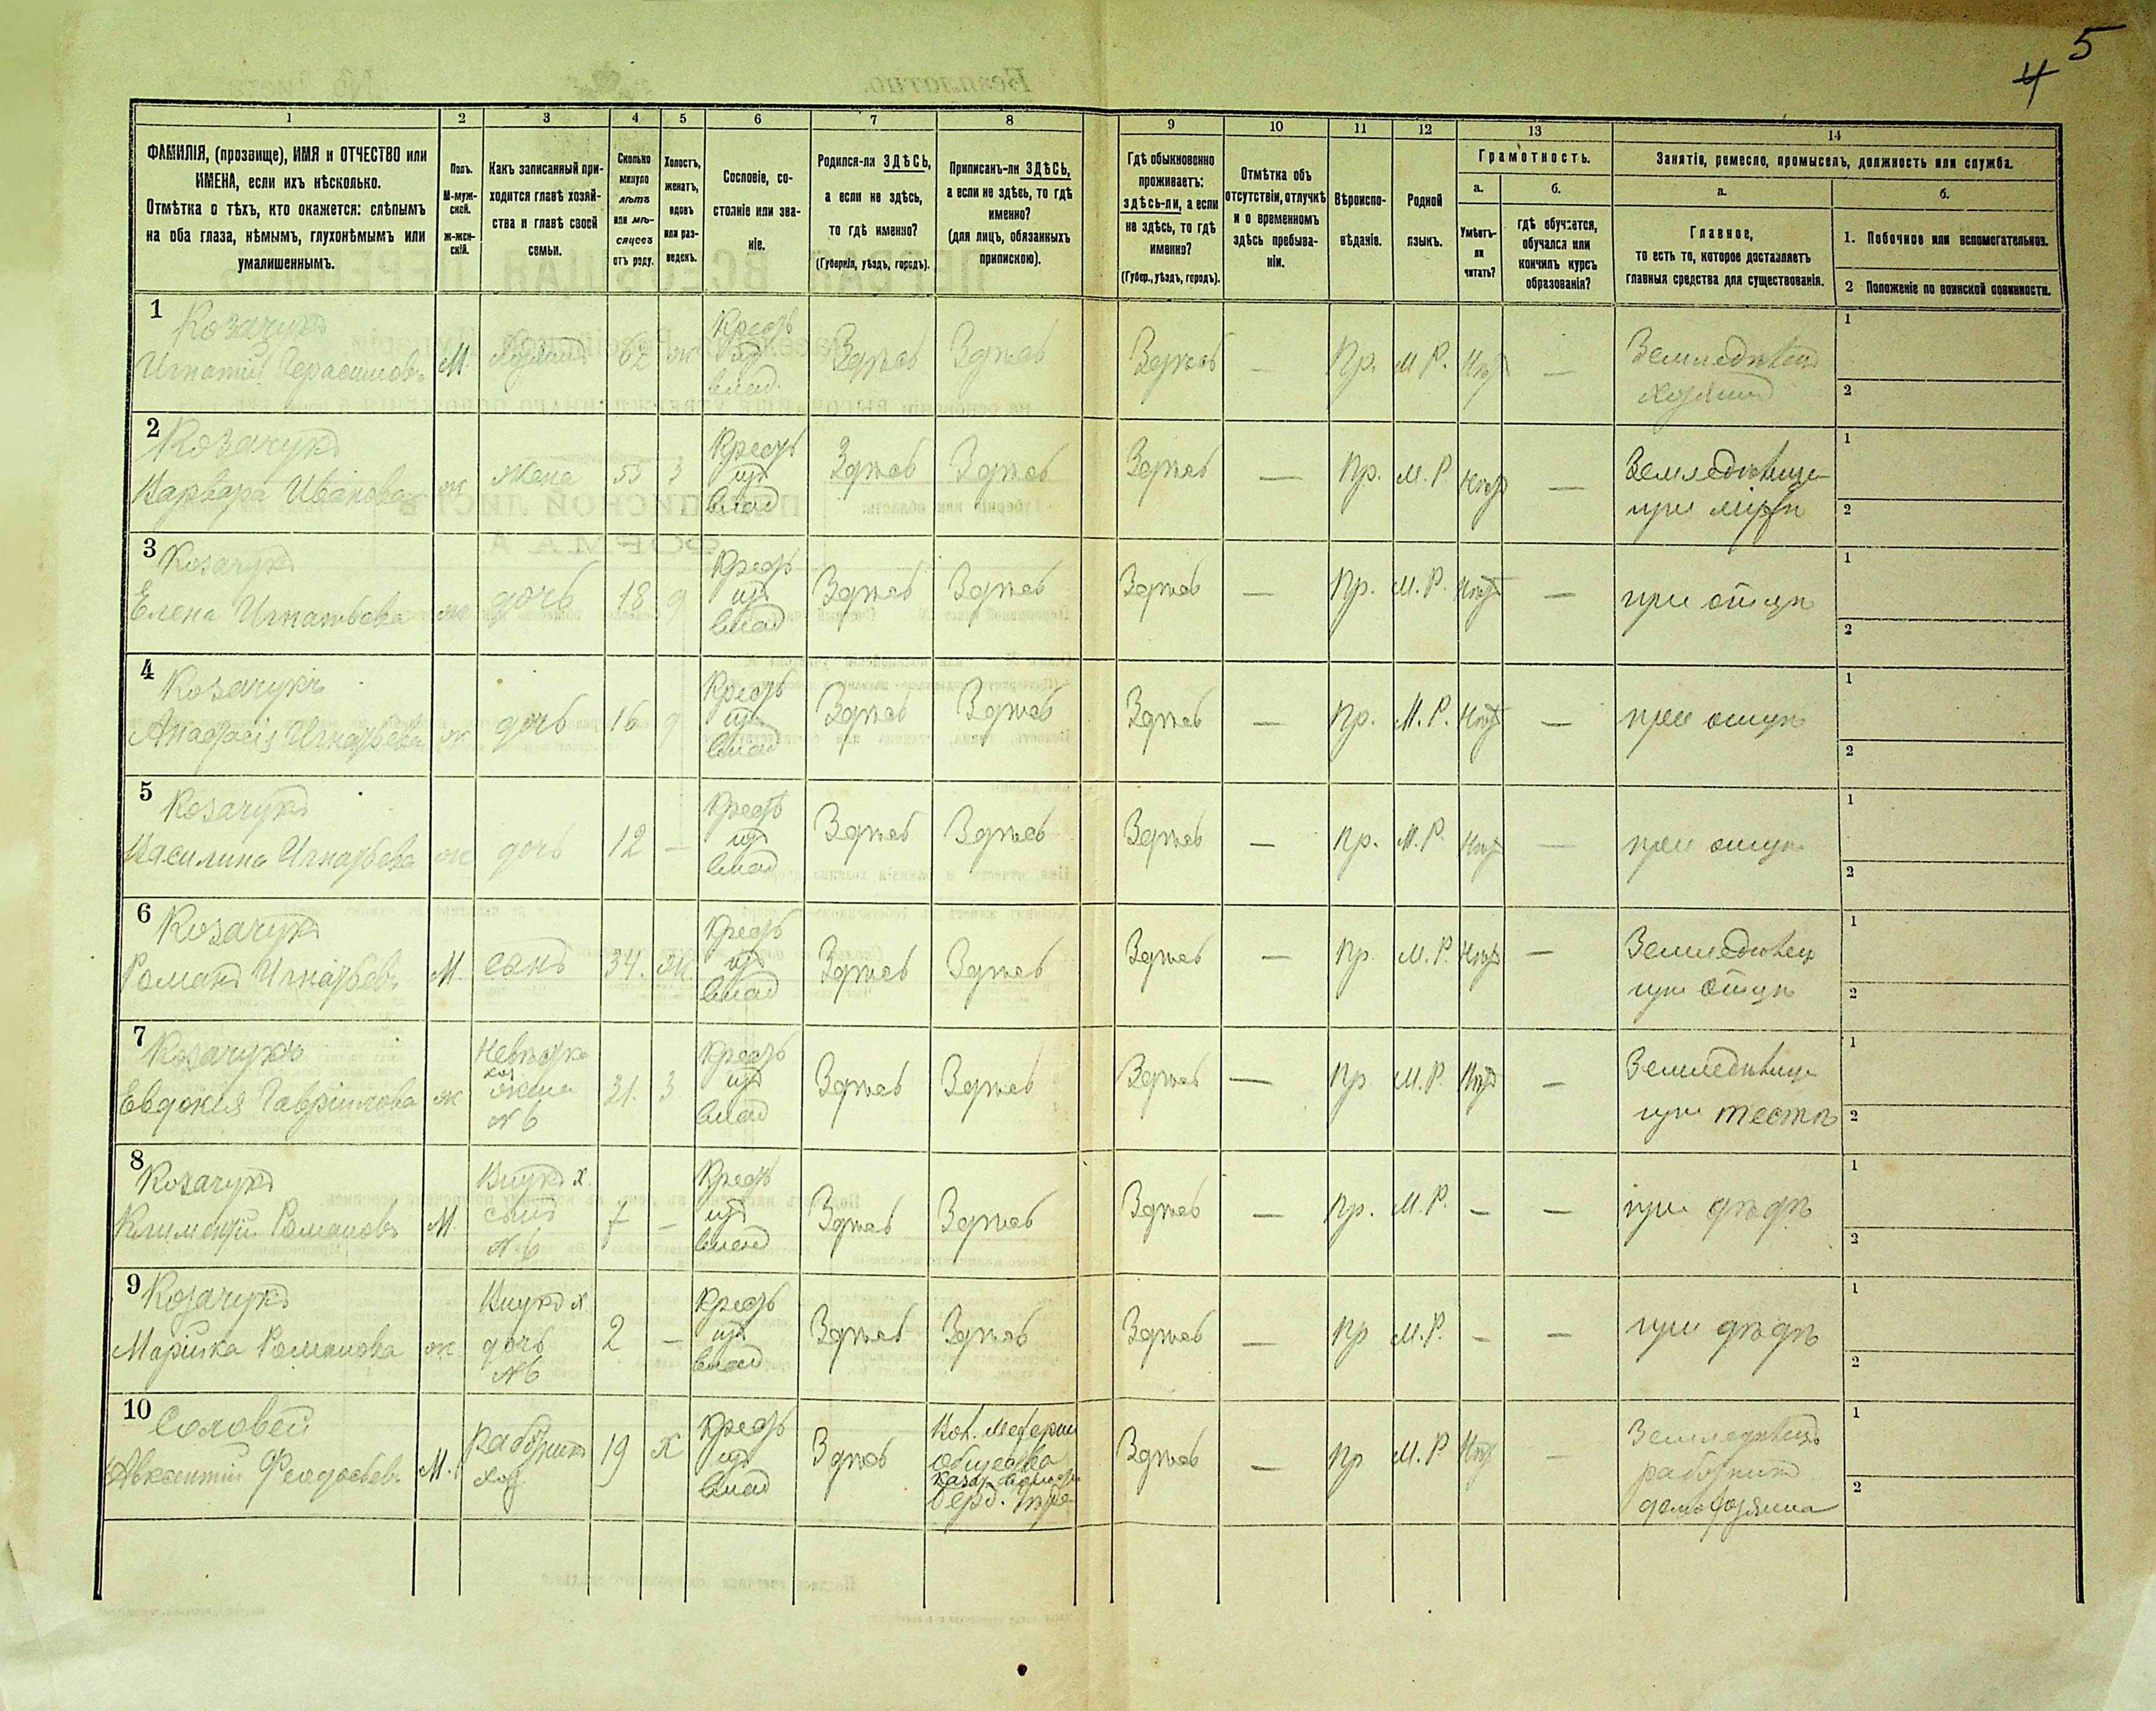 5
4
1 2 3 4 5 6 7 8 9 10 11 12 13 14
ФАМИЛІЯ, (прозвище), ИМЯ и ОТЧЕСТВО или
ИМЕНА, если ихъ нѣсколько.
Отмѣтка о тѣхъ, кто окажется: слѣпымъ
на оба глаза, нѣмымъ, глухонѣмымъ или
умалишеннымъ.
Полъ.
М-муж-
ской.
ж-жен-
скій.
Какъ записанный при-
ходится главѣ хозяй-
ства и главѣ своей
семьи.
Сколько
минуло
лѣтъ
или мѣ-
сяцевъ
отъ роду.
Холостъ,
женатъ,
вдовъ
или раз-
веденъ.
Сословіе, со-
стояніе или зва-
ніе.
Родился-ли ЗДѢСЬ,
а если не здѣсь,
то гдѣ именно?
(Губернія, уѣздъ, городъ).
Приписанъ-ли ЗДѢСЬ,
а если не здѣсь, то гдѣ
именно?
(для лицъ, обязанныхъ
припискою).
Гдѣ обыкновенно
проживаетъ:
здѣсь-ли, а если
не здѣсь, то гдѣ
именно?
(Губер., уѣздъ, городъ).
Отмѣтка объ
отсутствіи, отлучкѣ
и о временномъ
здѣсь пребыва-
ніи.
Вѣроиспо-
вѣданіе.
Родной
языкъ.
Грамотность.
а.
Умѣетъ-
ли
читать?
б.
гдѣ обучается,
обучался или
кончилъ курсъ
образованія?
Занятіе, ремесло, промыселъ, должность или служба.
а.
Главное,
то есть то, которое доставляетъ
главныя средства для существованія.
б.
1. Побочное или вспомогательное.
2 Положеніе по воинской повинности.
1
Козачукъ
Игнатій Герасимовъ
М.
Хозяинъ
62
ж
Крест
изъ
влад.
Здѣсь
Здѣсь
Здѣсь
—
Пр.
М Р.
Нѣт
—
Земледѣлецъ
хозяинъ
1
2
2
Козачукъ
Варвара Иванова
ж
жена
55
з
Крест
изъ
влад
Здѣсь
Здѣсь
Здѣсь
—
Пр.
М. Р
Нѣт
—
Земледѣлица
при
1
2
3
Козачукъ
Елена Игнатьева
ж
дочь
18
д
Крест
изъ
влад
Здѣсь
Здѣсь
Здѣсь
—
Пр.
М. Р.
Нѣт
—
при отцѣ
1
2
4
Козачукъ
Анастасія Игнатьева
ж
дочь
16
д
Крест
изъ
влад
Здѣсь
Здѣсь
Здѣсь
—
Пр.
М. Р.
Нѣт
—
при отцѣ
1
2
5
Козачукъ
Василина Игнатьева
ж
дочь
12
—
Крест
изъ
влад
Здѣсь
Здѣсь
Здѣсь
—
Пр.
М. Р.
Нѣт
—
при отцѣ
1
2
6
Козачукъ
Романъ Игнатьевъ
М.
сынъ
34.
ж.
Крест
изъ
влад
Здѣсь
Здѣсь
Здѣсь
—
Пр.
М. Р.
Нѣт
—
Земледѣлец
при отцѣ
1
2
7
Козачукъ
Евдокия Гаврилова
ж
Невѣстка
хоз
жена
№ 6
31.
з
Крест
изъ
влад
Здѣсь
Здѣсь
Здѣсь
—
Пр
М. Р.
Нѣт
—
Земледѣлица
при тестѣ
1
2
8
Козачукъ
Климентій Романовъ
М.
Внукъ х.
сынъ
№ 6
7
—
Крест
изъ
влад
Здѣсь
Здѣсь
Здѣсь
—
Пр.
М. Р.
—
—
при дѣдѣ
1
2
9
Козачукъ
Марійка Романова
ж
Внука х
дочь
№6
2
—
Крест
изъ
влад
Здѣсь
Здѣсь
Здѣсь
—
Пр
М. Р.
—
—
при дѣдѣ
1
2
10
Соловей
Авксентій Феодосьев.
М.
работникъ
хоз
19
Х
Крест
изъ
влад
Здѣсь
общества
Здѣсь
—
Пр
М. Р
Нѣт
—
Земледѣлецъ
работникъ
домохозяина
1
2